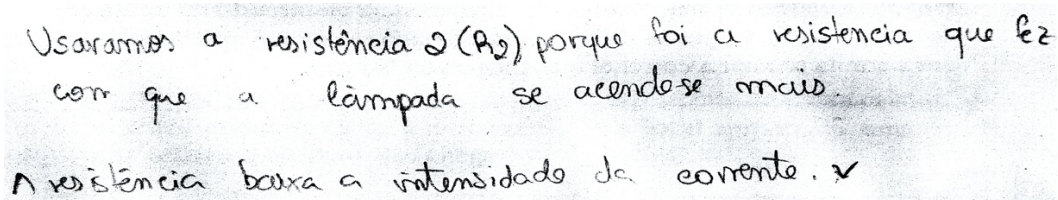 Usaramos a resistência 2 (R2), porque foi a resistencia que fez
com que a lâmpada se acende-se mais.
A resistência baixa a intensidade da corrente. ✓